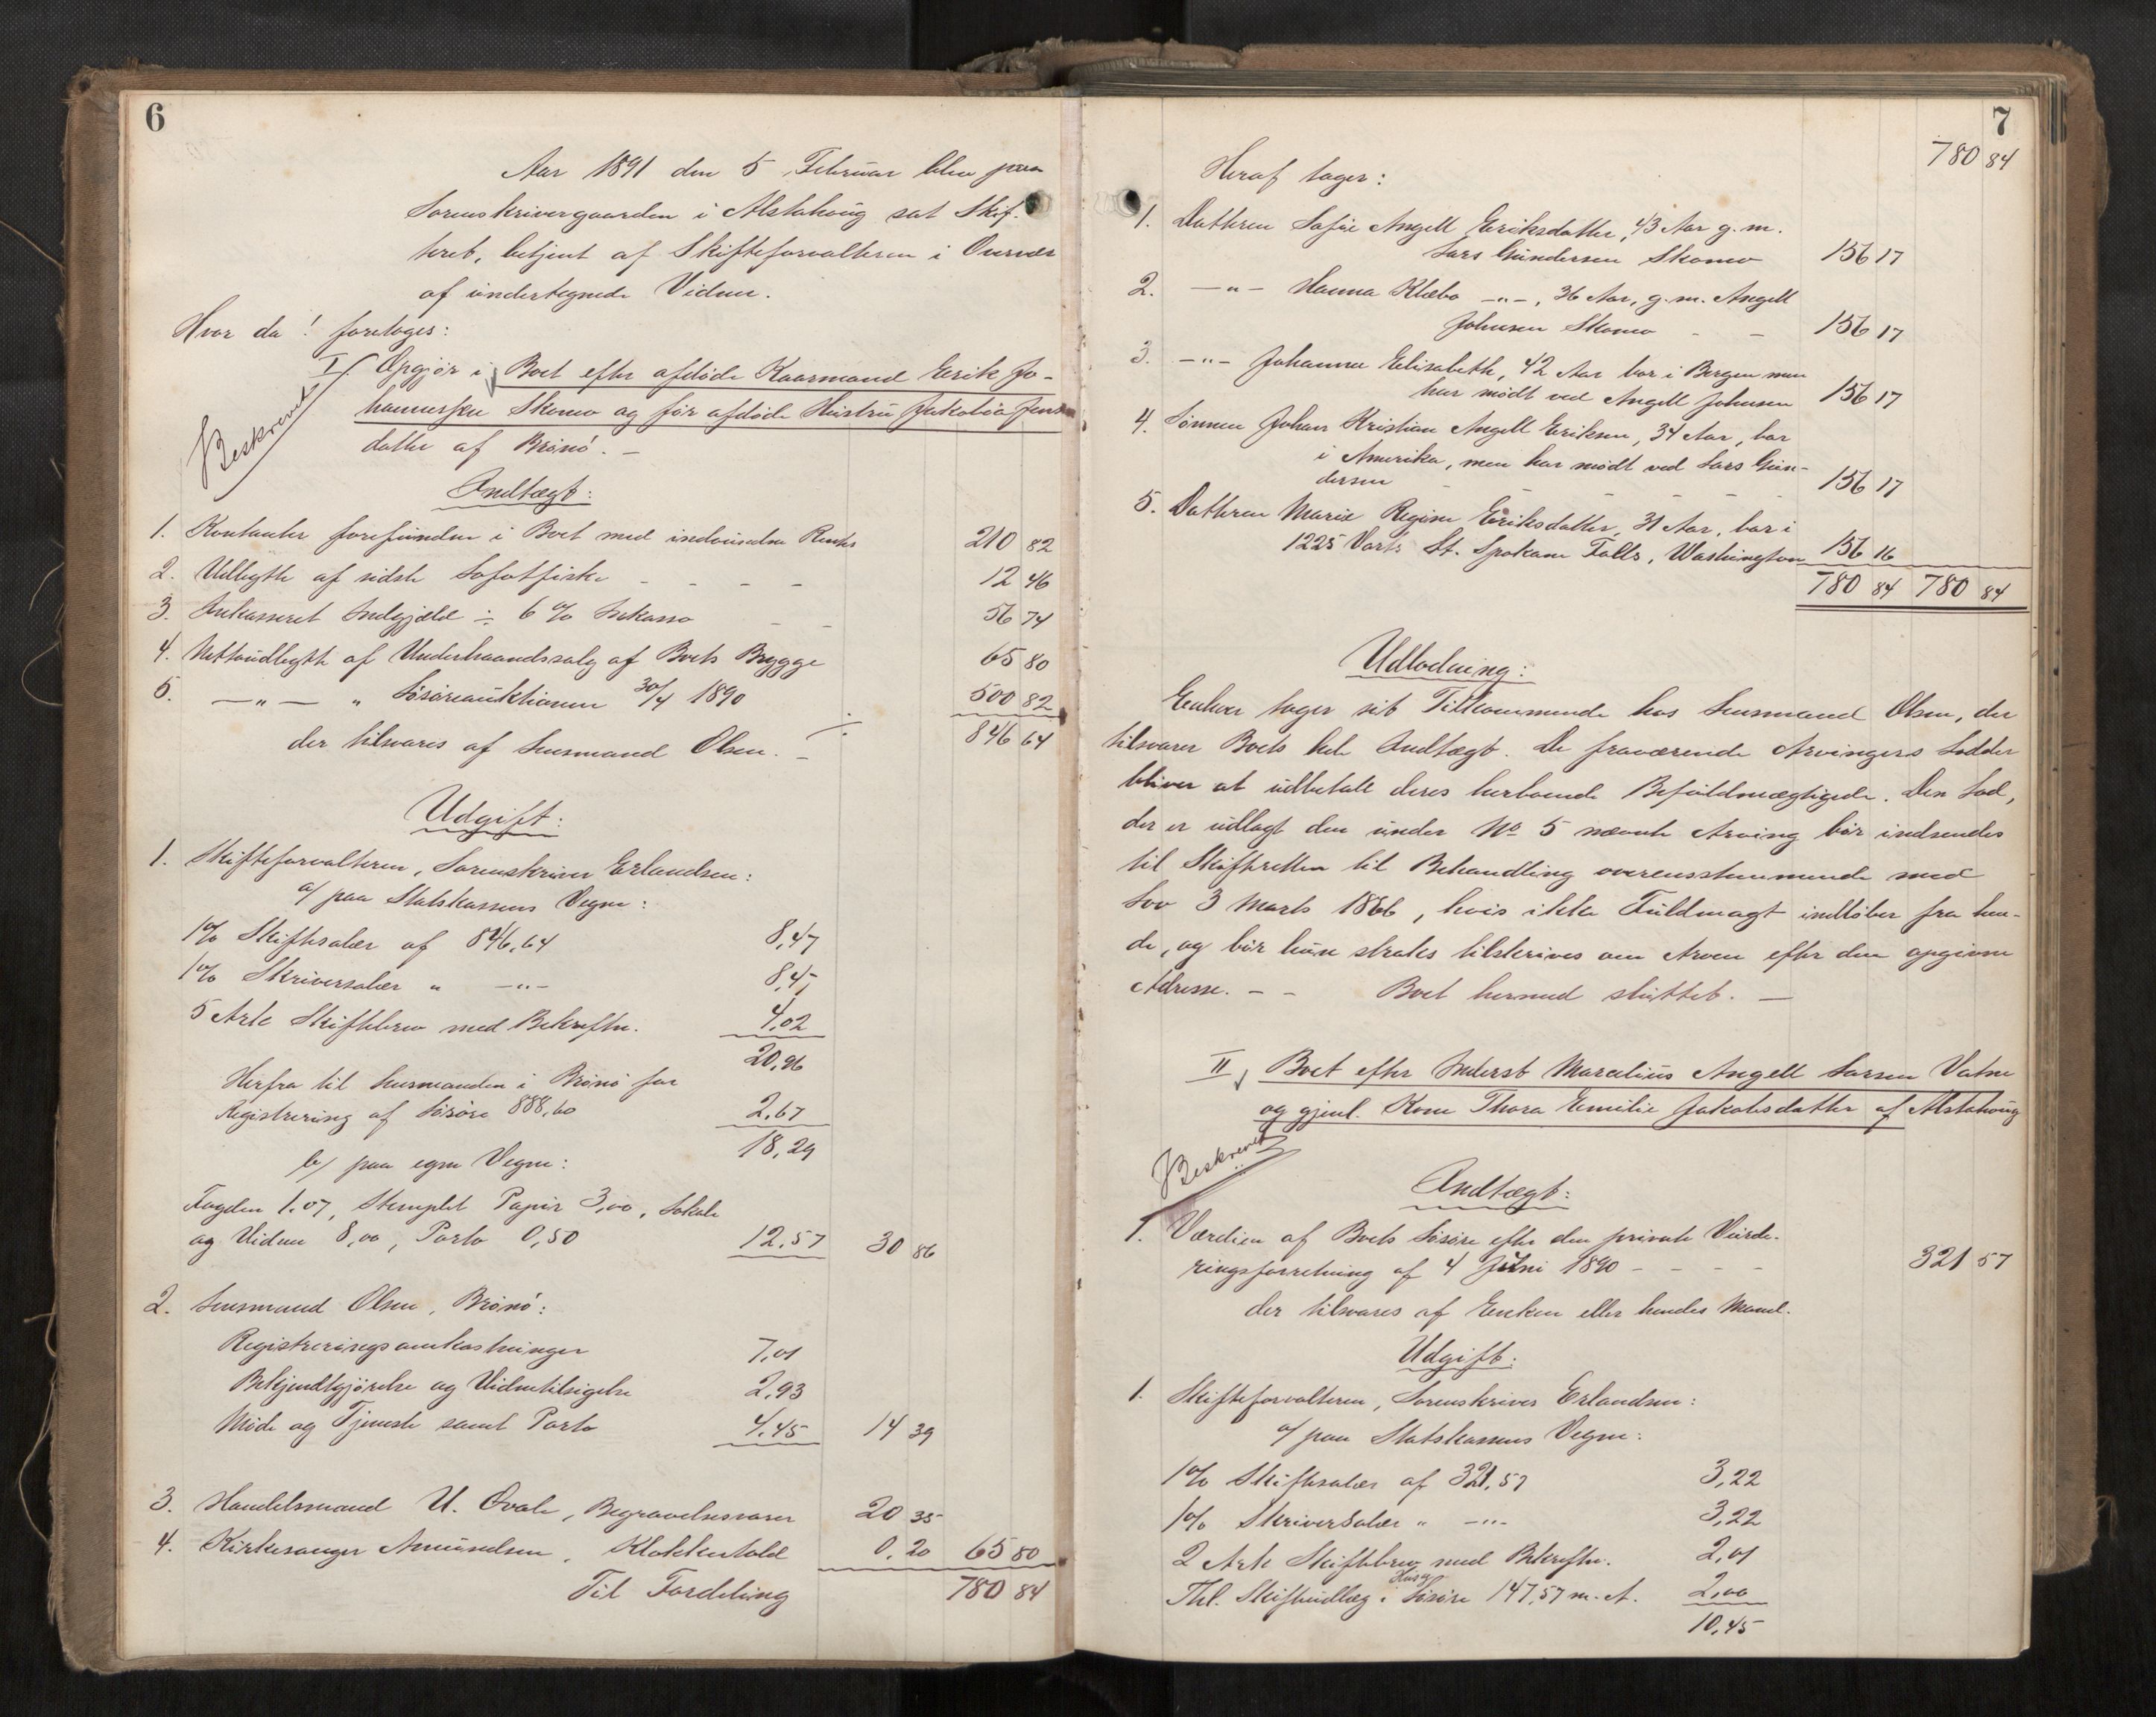 6
Aar 1891 den 5 Februar blev paa
Sorenskrivergaarden i Alstahoug sat Skif-
teret, betjent af Skifteforvalteren i Overvær
af undertegnede Vidner.
Hvor da! foretoges:
I. Opgjör i Boet efter afdöde Kaarmand Erik Jo-
hannesen Skomo og för afdöde Hustru Jakobia Jens
datter af Brönö. –
Beskrevet
Indtægt:
1. Kontanter forefunden i Boet med indvundne Renter 210 82
2. Udbytte af sidste Lofotfiske - - - - 12 46
3. Inkasseret Indgjæld ÷ 6 % Inkasso - - 56 74
4. Nettoudbytte af Underhaandssalg af Boets Brygge 65 80
5. —"— " Lösöreauktionen 30/4 1890 500 82
der tilsvares af Lensmand Olsen. – 846 64
Udgift:
1. Skifteforvalteren, Sorenskriver Erlandsen:
a/ paa Statskassens Vegne:
1% Skiftesalær af 846,64 8,47
1% Skriversalær " —"— 8,47
5 Ark Skiftebrev med Bekræftn. 4,02
20,96
Herfra til Lensmanden i Brönö for
Registrering af Lösöre 888,60 2,67
18,29
b/ paa egne Vegne:
Fogden 1.07, Stemplet Papir 3,00, Lokale
og Vidner 8,00, Porto 0,50 12,57 30 86
2. Lensmand Olsen, Brönö:
Registreringsomkostninger 7,01
Bekjendtgjörelse og Vidnetilsigelse 2,93
Möde og Tjeneste samt Porto 4,45 14 39
3. Handelsmand U. Qvale, Begravelsesvarer 20 35
4. Kirkesanger Amundsen, Klokkertold 0,20 65 80
Til Fordeling 780 84
7
780 84
Heraf tager:
1. Datteren Sofie Angell Eriksdatter, 43 Aar g. m.
Lars Gundersen Skomo 156 17
2. —"— Hanna Klæbo —"—, 36 Aar, g. m. Angell
Johnsen Skomo - - 156 17
3. —"— Johanna Elisabeth, 42 Aar bor i Bergen men
har mödt ved Angell Johnsen 156 17
4. Sönnen Johan Kristian Angell Eriksen, 34 Aar, bor
i Amerika, men har mödt ved Lars Gun-
dersen - - - - - 156 17
5. Datteren Marie Regine Eriksdatter, 31 Aar, bor i
1225 St. Spokane Falls, Washington 156 16
780 84 780 84
Udlodning:
Enhver tager sit Tilkommende hos Lensmand Olsen, der
tilsvarer Boets hele Indtægt. De fraværende Arvingers Lodder
bliver at udbetale deres herboende Befuldmægtigede. Den Lod,
der er udlagt den under No 5 nævnte Arving bör indsendes
til Skifteretten til Behandling overensstemmende med
Lov 3 Marts 1866, hvis ikke Fuldmagt indlöber fra hen-
de, og bör hun straks tilskrives om Arven efter den opgivne
Adresse. – – Boet hermed sluttet. –
II, Boet efter Inderst Marselius Angell Larsen Vatne
og gjenl. Kone Thora Emilie Jakobsdatter af Alstahoug
Beskrevet
Indtægt:
1. Værdien af Boets Lösöre efter den private Vurde-
ringsforretning af 4 Juni 1890 - - - - 321 57
der tilsvares af Enken eller hendes Mand.
Udgift:
1. Skifteforvalteren, Sorenskriver Erlandsen:
a/ paa Statskassens Vegne:
1% Skiftesalær af 321,57 3,22
1% Skriversalær " —"— 3,22
2 Ark Skiftebrev med Bekræftn. 2,01
Thl. Skifteudlæg i Hus og Lösöre 147,57 m. A. 2,00
10,45